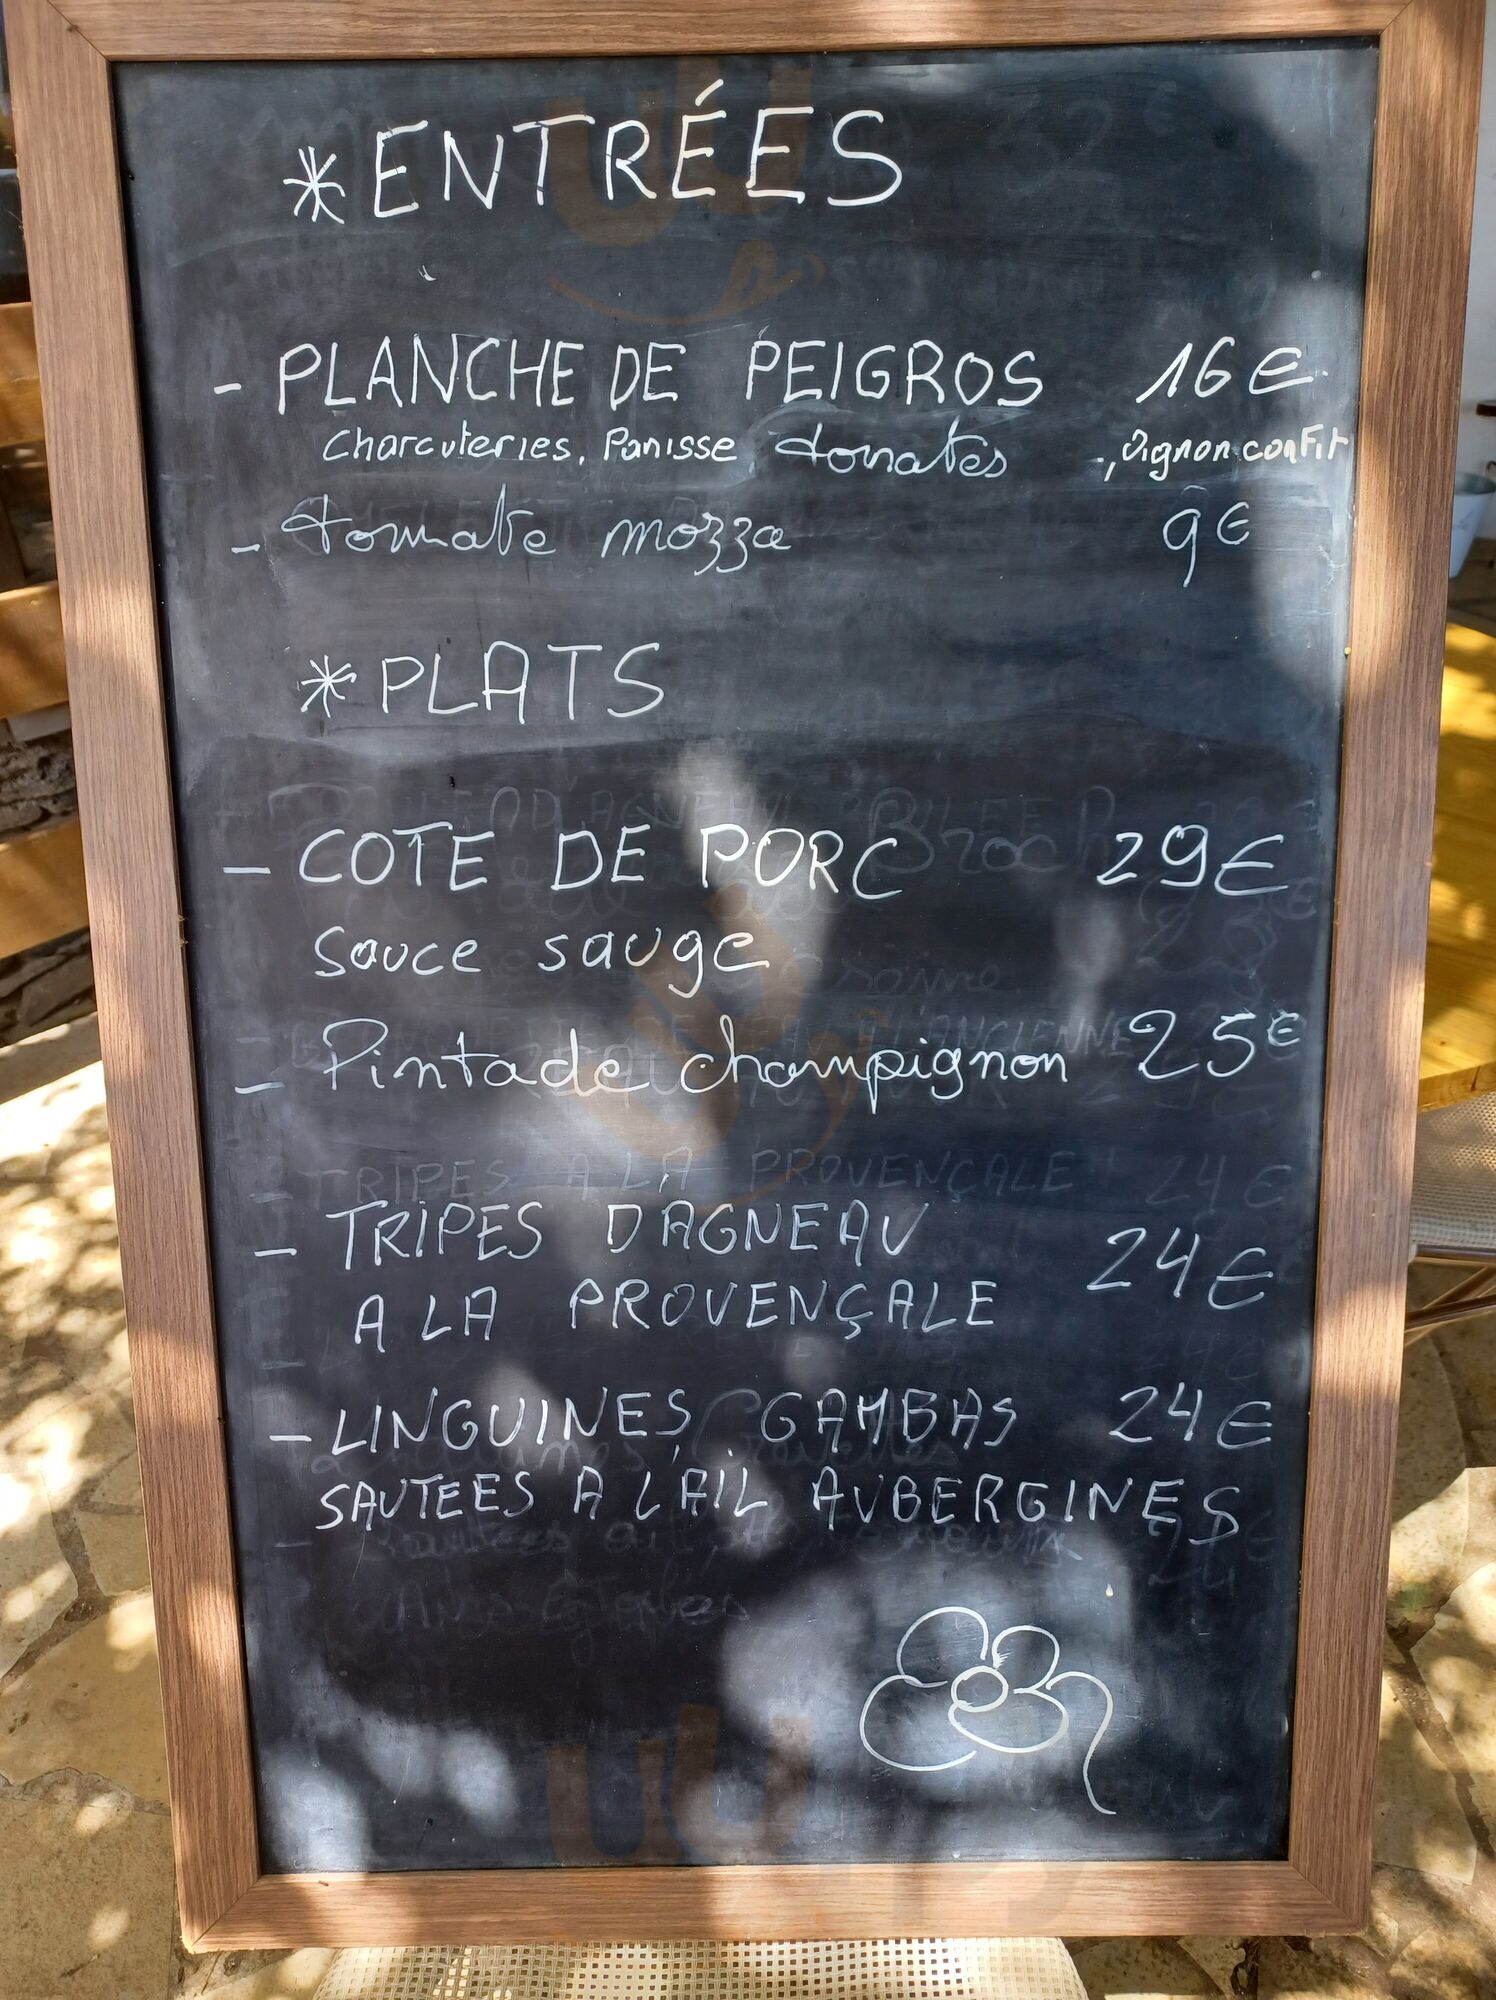 *ENTRÉES
- PLANCHE DE PEIGROS 16€
Charcuteries, Panisse, tomates, oignon confit
- tomate mozza 9€
*PLATS
- COTE DE PORC 29€
sauce sauge
- Pintade champignon 25€
- TRIPES D'AGNEAU 24€
A LA PROVENÇALE
- LINGUINES, GAMBAS 24€
SAUTEES A L'AIL AUBERGINES